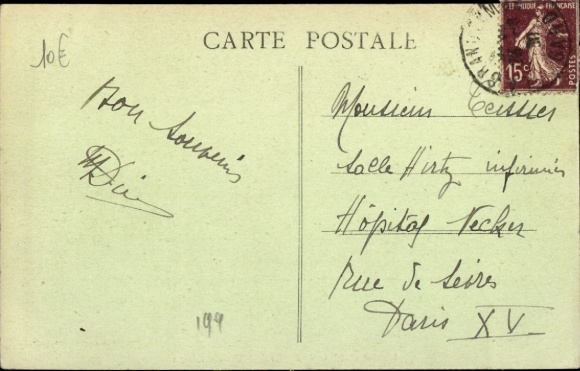 10€
CARTE POSTALE
REPUBLIQUE FRANÇAISE
15c
POSTES
Bon Souvenir
Monsieur Teissier
Salle Hirtz infirmier
Hôpital Necker
Rue de Sèvres
Paris XV
199